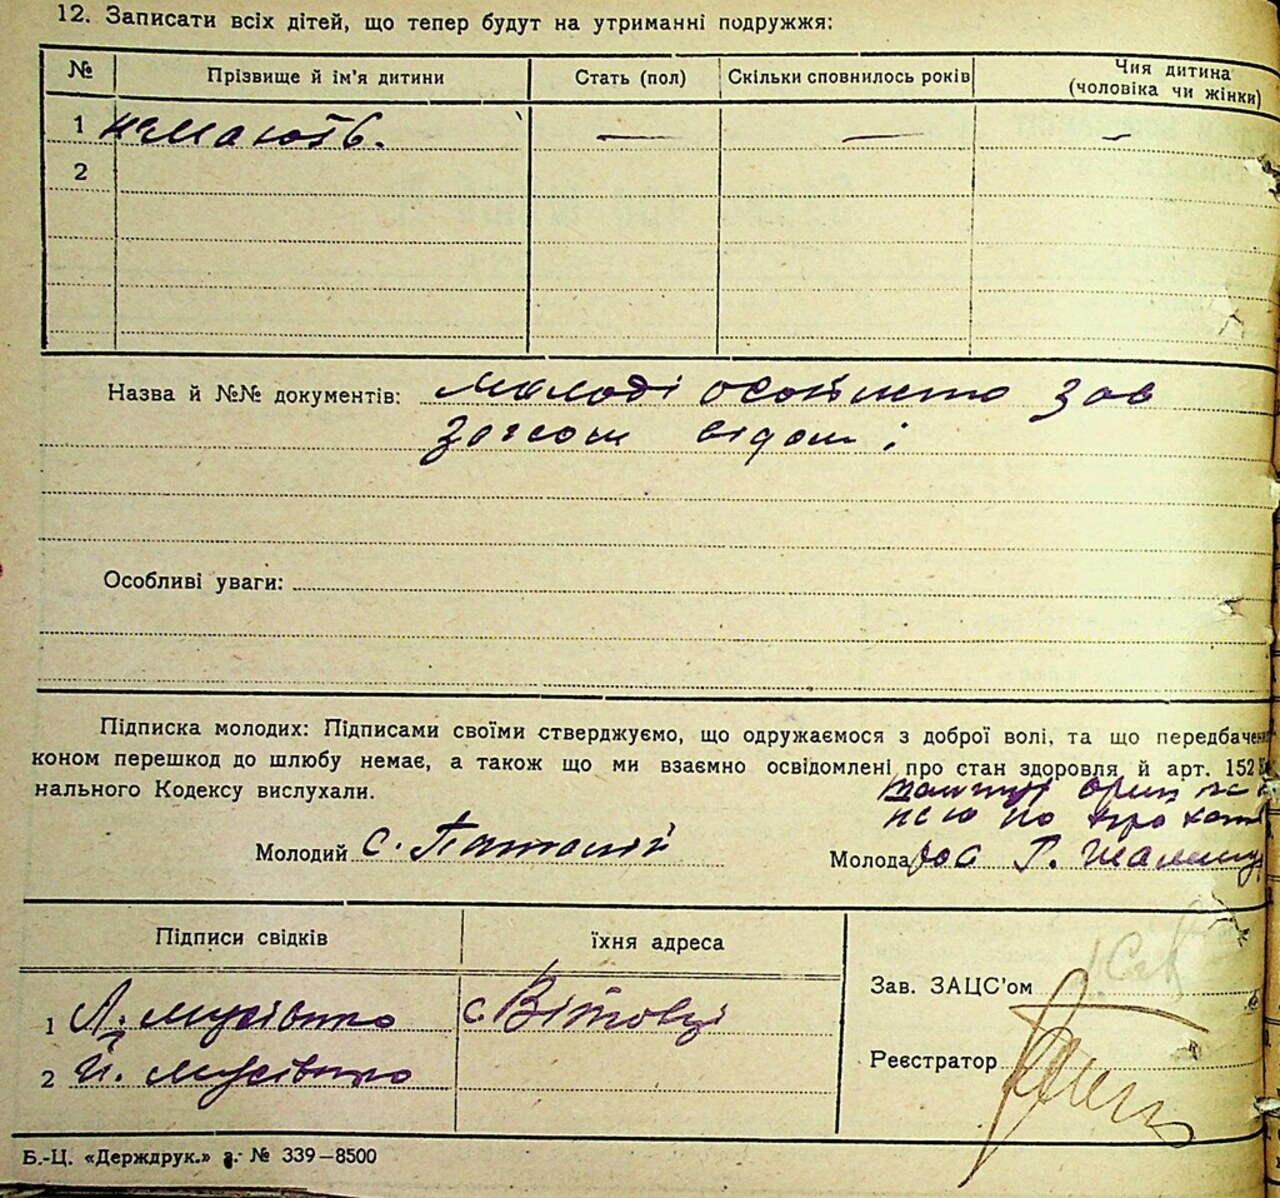 12. Записати всіх дітей, що тепер будут на утриманні подружжя:
№ Прізвище й ім'я дитини Стать (пол) Скільки сповнилось років Чия дитина (чоловіка чи жінки)
1 немають. — — —
2
Назва й №№ документів: молоді особисто зав
загсом відомі
Особливі уваги:
Підписка молодих: Підписами своїми стверджуємо, що одружаємося з доброї волі, та що передбачен
коном перешкод до шлюбу немає, а також що ми взаємно освідомлені про стан здоровля й арт. 152
нального Кодексу вислухали.
Молодий с.
Молода
Підписи свідків їхня адреса
Зав. ЗАЦС'ом
1 Л. Мусієнко с Вітовці
Реєстратор
2 Й. Мусієнко
Б.-Ц. «Держдрук.» з. № 339—8500